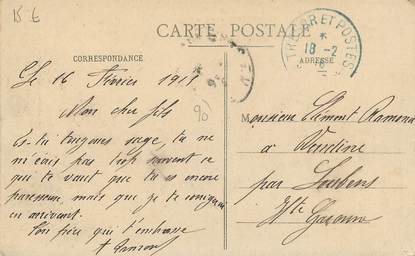 15 €
CARTE POSTALE
TRESOR ET POSTES
*
18-2
CORRESPONDANCE
ADRESSE
Le 16 Février 191
Mon cher fils
90
Es-tu toujours sage, tu ne
m'écris pas trop souvent ce
qui je vaut que tu es encore
paresseux, mais que je te
en arrivant.
Ton père qui t'embrasse
Monsieur Clément Ramond
à Verdine
par Loubens
Hte Garonne